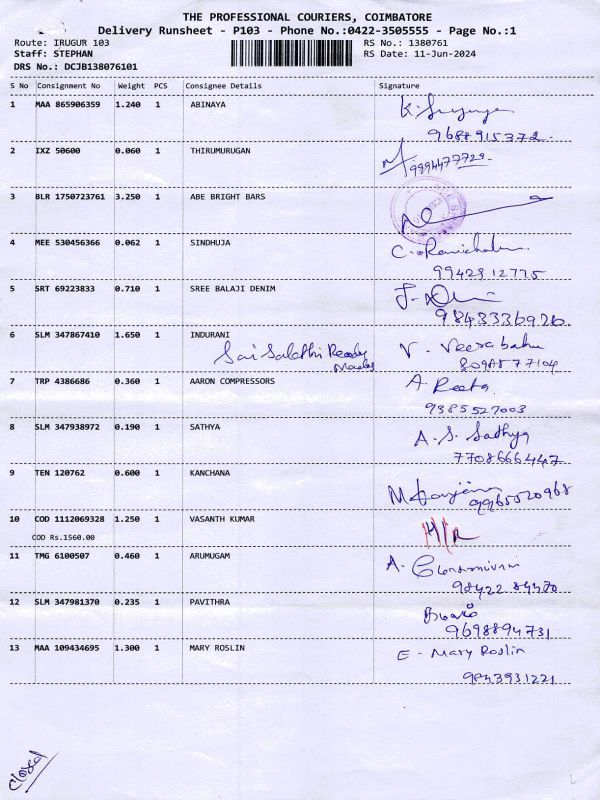 THE PROFESSIONAL COURIERS, COIMBATORE
Delivery Runsheet - P103 - Phone No.:0422-3505555 - Page No.:1
Route: IRUGUR 103 RS No.: 1380761
Staff: STEPHAN RS Date: 11-Jun-2024
DRS No.: DCJB138076101
S No Consignment No Weight PCS Consignee Details Signature
1 MAA 865906359 1.240 1 ABINAYA
9688915372
2 IXZ 50600 0.060 1 THIRUMURUGAN 9994477729
3 BLR 1750723761 3.250 1 ABE BRIGHT BARS
4 MEE 530456366 0.062 1 SINDHUJA
9942912775
5 SRT 69223833 0.710 1 SREE BALAJI DENIM
9843336926.
6 SLM 347867410 1.650 1 INDURANI V. Veerabahu
Sai Salethi Ready
7 TRP 4386686 0.360 1 AARON COMPRESSORS A. Reeta
9385527003
8 SLM 347938972 0.190 1 SATHYA A. S. Sathya
7708666447
9 TEN 120762 0.600 1 KANCHANA
9965520968
10 COD 1112069328 1.250 1 VASANTH KUMAR
COD Rs.1560.00
11 TMG 6100507 0.460 1 ARUMUGAM A.
98422 84470
12 SLM 347981370 0.235 1 PAVITHRA
9698894731
13 MAA 109434695 1.300 1 MARY ROSLIN E - Mary Roslin
9843931221
closed